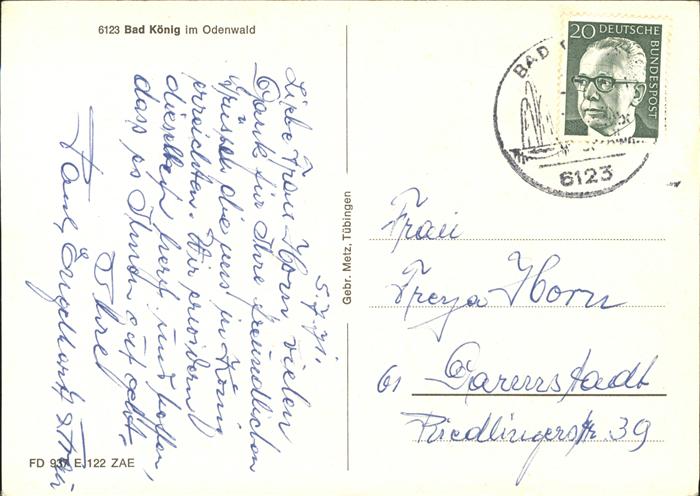 6123 Bad König im Odenwald
5.7.71.
Liebe Frau Horn vielen
Dank für Ihre freundlichen
Grüsse die uns in König
erreichten. Wir erwidern
dieselben herzl. und hoffen,
dass es Ihnen gut geht.
Ihre
Paul Engelhart u. Frau
FD 937 E.122 ZAE
Gebr. Metz, Tübingen
BAD
6123
20
DEUTSCHE
BUNDESPOST
Frau
Freya Horn
61 Darmstadt
Riedlingerstr. 39